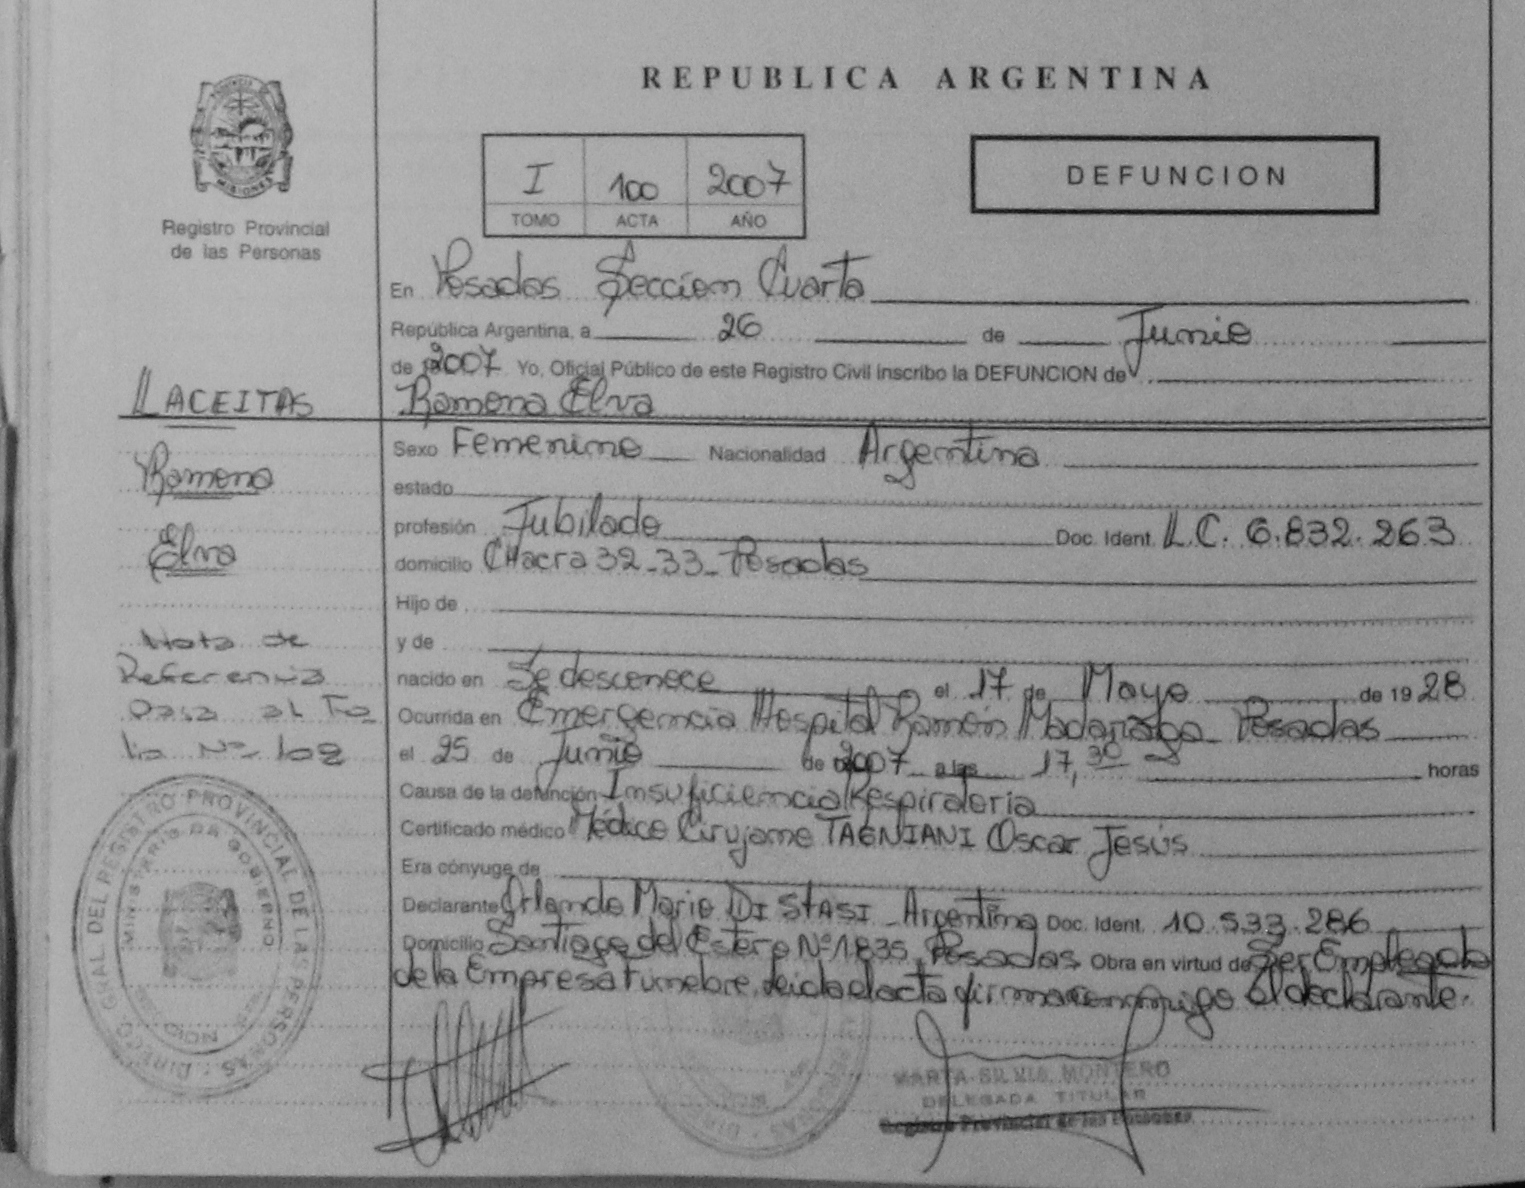 REPUBLICA ARGENTINA
MISIONES
Registro Provincial
de las Personas
I 100 2007
TOMO ACTA AÑO
DEFUNCION
En Posadas Seccion Cuarta
República Argentina, a 26 de Junio
de 2007 Yo, Oficial Público de este Registro Civil inscribo la DEFUNCION de
LLACEITAS Ramona Elva
Ramona
Elva
Sexo Femenino Nacionalidad Argentina
estado
profesión Jubilado Doc. Ident. L.C. 6.832.263
domicilio CHacra 32-33- Posadas
Hijo de
y de
Nota de
Referencia
pasa al Fo
lio Nº 102
nacido en Se desconoce el 17 de Mayo de 1928
Ocurrida en Emergencia Hospital Ramón Madariaga Posadas
el 25 de Junio de 2007 a las 17,30 horas
Causa de la defunción Insuficiencia Respiratoria
Certificado médico Médico Cirujano TAGNIANI Oscar Jesús
Era cónyuge de
Declarante Orlando Mario DI STASI - Argentino Doc. Ident. 10.533.286
Domicilio Santiago del Estero Nº 1835 Posadas Obra en virtud de Ser Empleado
de la Empresa Funebre, leida el acta firma conmigo el declarante.
DIRECC. GRAL. DEL REGISTRO PROVINCIAL DE LAS PERSONAS
MINISTERIO DE GOBIERNO
MARTA SILVIA MONTERO
DELEGADA TITULAR
Registro Provincial de las Personas